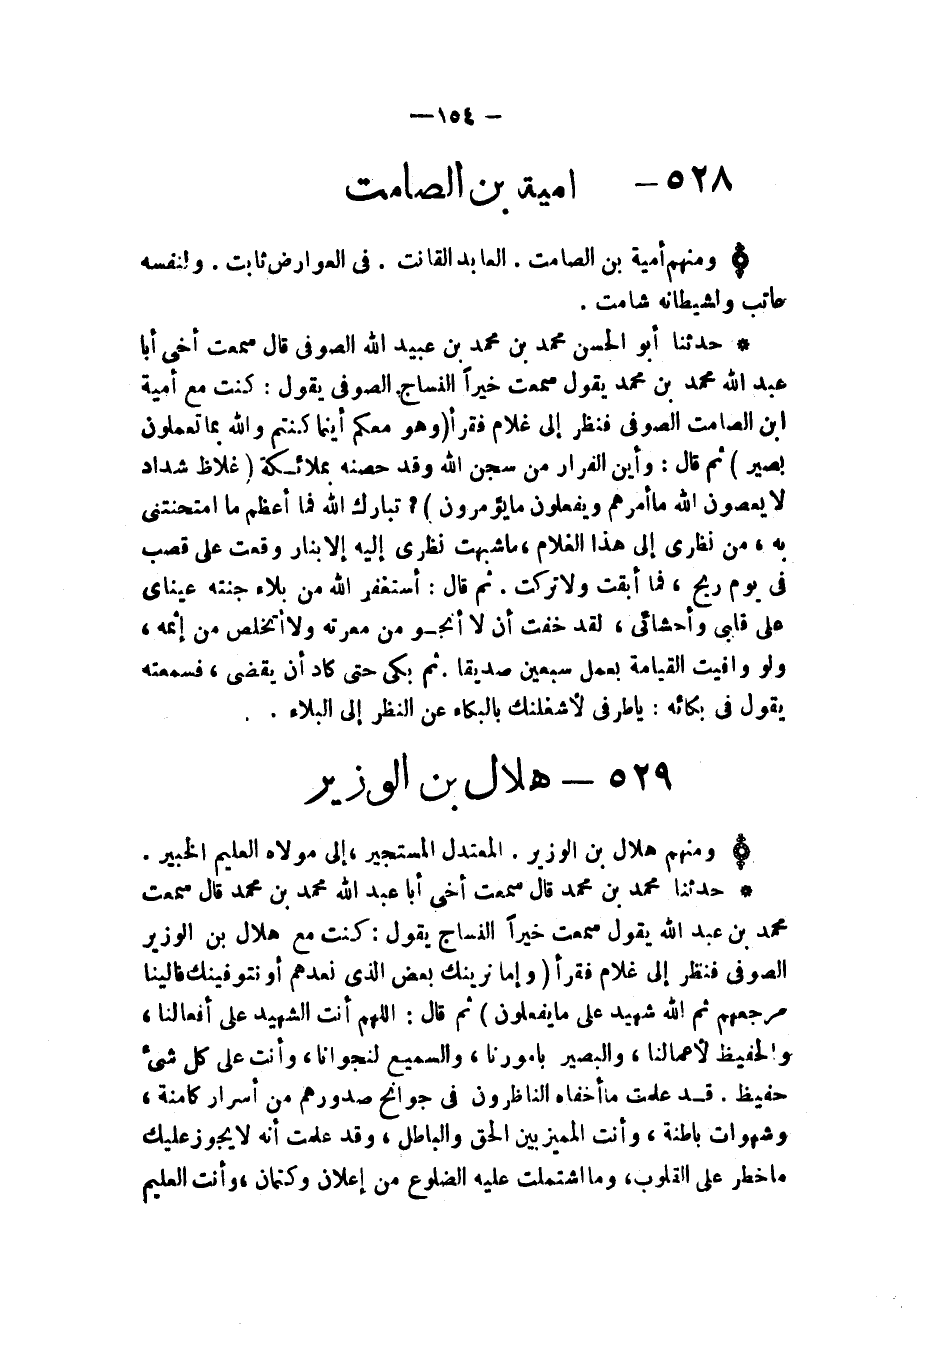 — ١٥٤ —
٥٢٨ — امية بن الصامت
ومنهم أمية بن الصامت . العابد القانت . فى العوارض ثابت . ولنفسه
عاتب ولشيطانه شامت .
* حدثنا أبو الحسن محمد بن محمد بن عبيد الله الصوفى قال سمعت أخى أبا
عبد الله محمد بن محمد يقول سمعت خيراً النساج الصوفى يقول : كنت مع أمية
ابن الصامت الصوفى فنظر إلى غلام فقرأ ( وهو معكم أينما كنتم والله بما تعملون
بصير ) ثم قال : وأين الفرار من سجن الله وقد حصنه بملائكة ( غلاظ شداد
لا يعصون الله ما أمرهم ويفعلون ما يؤمرون ) ؟ تبارك الله فما أعظم ما امتحنتنى
به ، من نظرى إلى هذا الغلام ، ما شبهت نظرى إليه إلا بنار وقعت على قصب
فى يوم ريح ، فما أبقت ولا تركت . ثم قال : أستغفر الله من بلاء جنته عيناى
على قلبى وأحشائى ، لقد خفت أن لا أنجو من معرته ولا أتخلص من إثمه ،
ولو وافيت القيامة بعمل سبعين صديقا . ثم بكى حتى كاد أن يقضى ، فسمعته
يقول فى بكائه : ياطرفى لأشغلنك بالبكاء عن النظر إلى البلاء .
٥٢٩ — هلال بن الوزير
ومنهم هلال بن الوزير . المعتدل المستجير ، إلى مولاه العليم الخبير .
* حدثنا محمد بن محمد قال سمعت أخى أبا عبد الله محمد بن محمد قال سمعت
محمد بن عبد الله يقول سمعت خيراً النساج يقول : كنت مع هلال بن الوزير
الصوفى فنظر إلى غلام فقرأ ( وإما نرينك بعض الذى نعدهم أو نتوفينك فالينا
مرجعهم ثم الله شهيد على ما يفعلون ) ثم قال : اللهم أنت الشهيد على أفعالنا ،
والحفيظ لأعمالنا ، والبصير بامورنا ، والسميع لنجوانا ، وأنت على كل شىء
حفيظ . قد علمت ما أخفاه الناظرون فى جوانح صدورهم من أسرار كامنة ،
وشهوات باطنة ، وأنت المميز بين الحق والباطل ، وقد علمت أنه لا يجوز عليك
ما خطر على القلوب ، وما اشتملت عليه الضلوع من إعلان وكتمان ، وأنت العليم